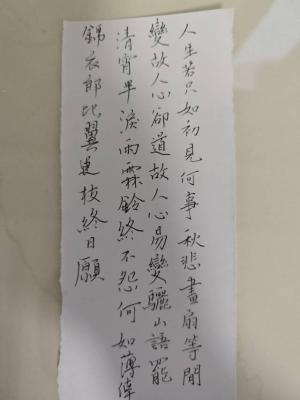 人生若只如初見何事秋悲畫扇等閒
變故人心卻道故人心易變驪山語罷
清宵半淚雨霖鈴終不怨何如薄倖
錦衣郎比翼連枝終日願